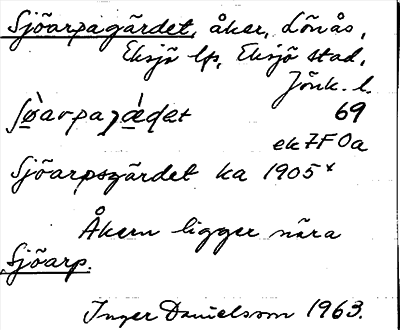 Sjöarpagärdet, åker, Lönås,
Eksjö lfs, Eksjö stad,
Jönk. l.
69
ek 7F0a
Sjöarpsgärdet ka 1905ˣ
Åkern ligger nära
Sjöarp.
Inger Danielsson 1963.